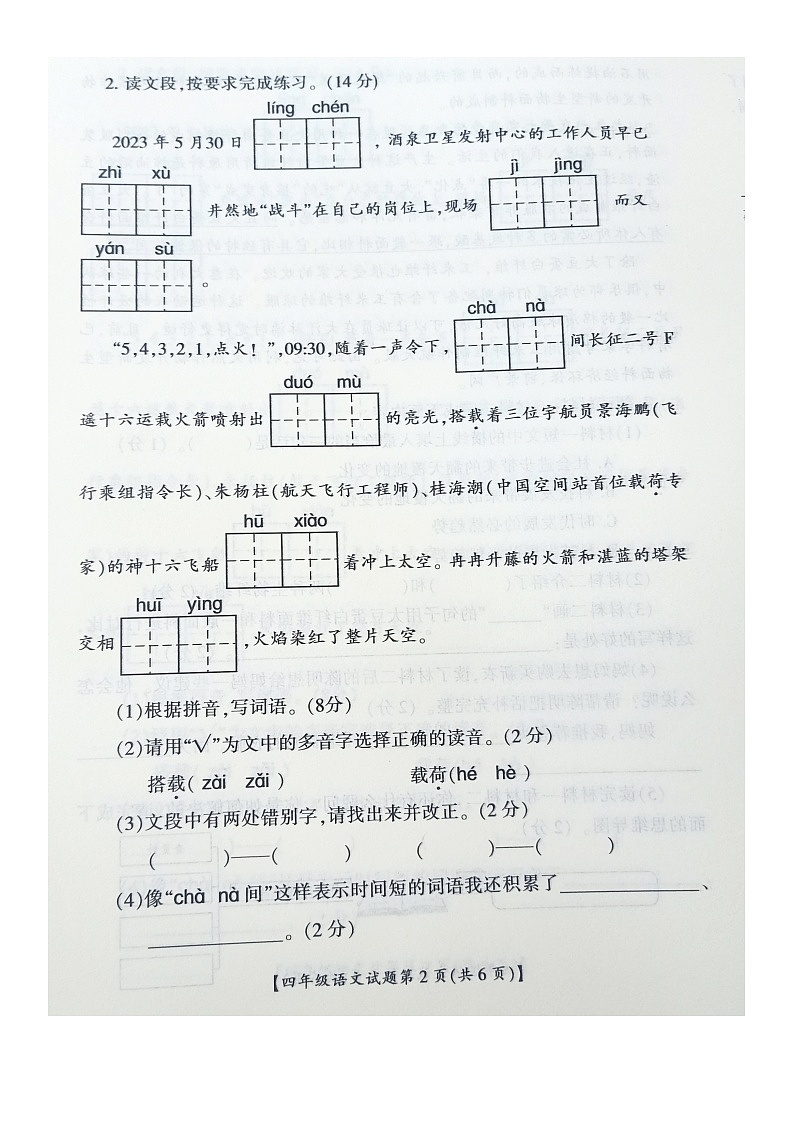 2. 读文段,按要求完成练习。(14分)
líng chén
2023年5月30日 ,酒泉卫星发射中心的工作人员早已
zhì xù jì jìng
井然地“战斗”在自己的岗位上,现场 而又
yán sù
。
chà nà
“5,4,3,2,1,点火！”,09:30,随着一声令下, 间长征二号F
duó mù
遥十六运载火箭喷射出 的亮光,搭载着三位宇航员景海鹏(飞
行乘组指令长)、朱杨柱(航天飞行工程师)、桂海潮(中国空间站首位载荷专
hū xiào
家)的神十六飞船 着冲上太空。冉冉升藤的火箭和湛蓝的塔架
huī yìng
交相 ,火焰染红了整片天空。
(1)根据拼音,写词语。(8分)
(2)请用“√”为文中的多音字选择正确的读音。(2分)
搭载( zài zǎi ) 载荷(hé hè )
(3)文段中有两处错别字,请找出来并改正。(2分)
( )——( ) ( )——( )
(4)像“chà nà间”这样表示时间短的词语我还积累了____________、
____________。(2分)
【四年级语文试题第2页(共6页)】